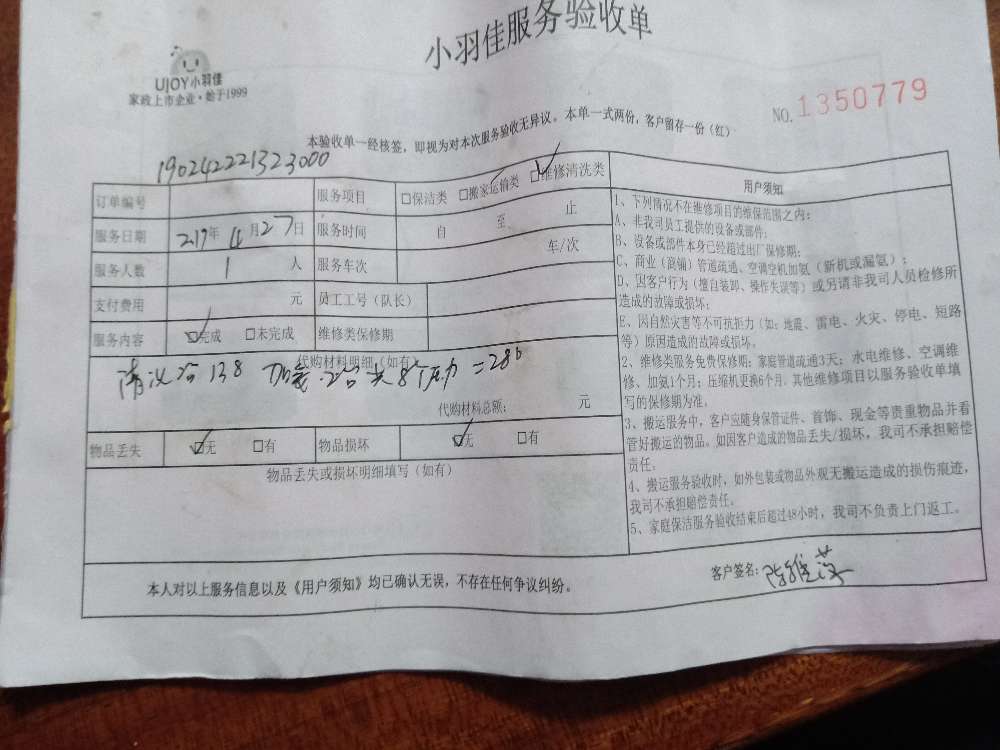 小羽佳服务验收单
UJOY小羽佳
家政上市企业·始于1999
NO.1350779
本验收单一经核签，即视为对本次服务验收无异议。本单一式两份，客户留存一份（红）
190242221323000
订单编号 服务项目 □保洁类 □搬家运输类 ☑维修清洗类
服务日期 219年4月27日 服务时间 自 至 止
服务人数 1 人 服务车次 车/次
支付费用 元 员工工号（队长）
服务内容 ☑完成 □未完成 维修类保修期
代购材料明细（如有）
138 2台 8个压力=286
代购材料总额： 元
物品丢失 ☑无 □有 物品损坏 ☑无 □有
物品丢失或损坏明细填写（如有）
用户须知
1、下列情况不在维修项目的维保范围之内：
A、非我司员工提供的设备或部件；
B、设备或部件本身已经超过出厂保修期；
C、商业（商铺）管道疏通、空调空机加氨（新机或漏氨）；
D、因客户行为（擅自装卸、操作失误等）或另请非我司人员检修所
造成的故障或损坏；
E、因自然灾害等不可抗拒力（如：地震、雷电、火灾、停电、短路
等）原因造成的故障或损坏。
2、维修类服务免费保修期：家庭管道疏通3天；水电维修、空调维
修、加氨1个月；压缩机更换6个月。其他维修项目以服务验收单填
写的保修期为准。
3、搬运服务中，客户应随身保管证件、首饰、现金等贵重物品并看
管好搬运的物品。如因客户造成的物品丢失/损坏，我司不承担赔偿
责任；
4、搬运服务验收时，如外包装或物品外观无搬运造成的损伤痕迹，
我司不承担赔偿责任。
5、家庭保洁服务验收结束后超过48小时，我司不负责上门返工。
本人对以上服务信息以及《用户须知》均已确认无误，不存在任何争议纠纷。
客户签名：